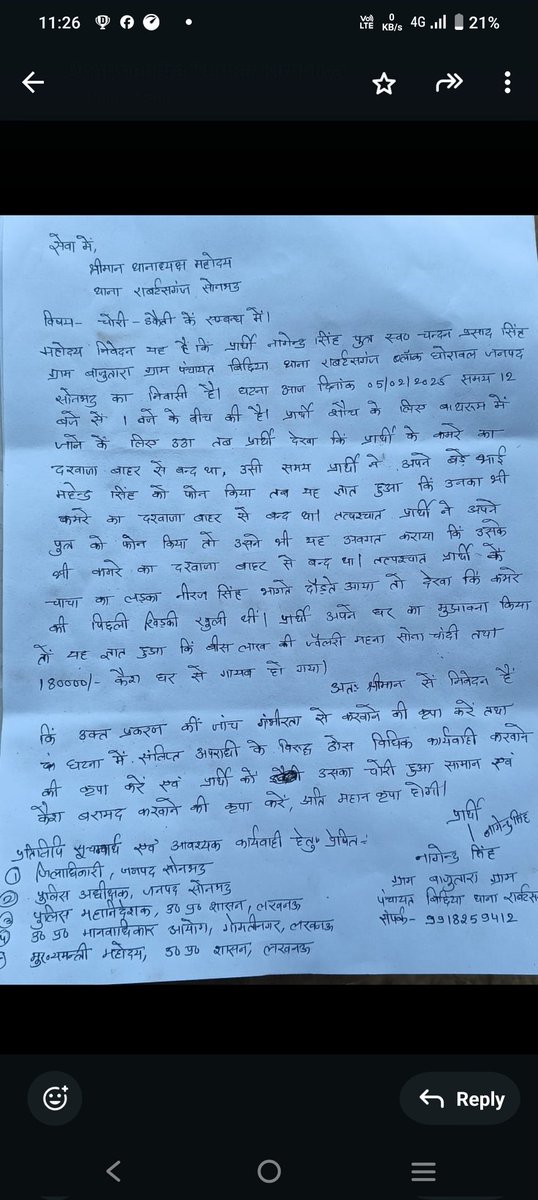 11:26
Vo)) LTE
0 KB/s
4G
21%
सेवा में,
श्रीमान थानाध्यक्ष महोदय
थाना राबर्टसगंज सोनभद्र
विषय- चोरी-डकैती के सम्बन्ध में।
महोदय निवेदन यह है कि प्रार्थी नागेन्द्र सिंह पुत्र स्व० चन्दन प्रसाद सिंह
ग्राम बागुतारा ग्राम पंचायत बिढिया थाना राबर्टसगंज ब्लॉक घोरावल जनपद
सोनभद्र का निवासी है। घटना आज दिनांक 05/02/2025 समय 12
बजे से 1 बजे के बीच की है। प्रार्थी शौच के लिए बाथरूम में
जाने के लिए उठा तब प्रार्थी देखा कि प्रार्थी के कमरे का
दरवाजा बाहर से बन्द था, उसी समय प्रार्थी ने अपने बड़े भाई
महेन्द्र सिंह को फोन किया तब यह ज्ञात हुआ कि उनका भी
कमरे का दरवाजा बाहर से बन्द था। तत्पश्चात प्रार्थी ने अपने
पुत्र को फोन किया तो उसने भी यह अवगत कराया कि उसके
भी कमरे का दरवाजा बाहर से बन्द था। तत्पश्चात प्रार्थी के
चाचा का लड़का नीरज सिंह भागते दौड़ते आया तो देखा कि कमरे
की पिछली खिड़की खुली थीं। प्रार्थी अपने घर का मुआवना किया
तों यह ज्ञात हुआ कि बीस लाख की ज्वैलरी गहना सोना चांदी तथा
180000/- कैश घर से गायब हो गया।
अतः श्रीमान से निवेदन है
कि उक्त प्रकरण की जांच गंभीरता से करवाने की कृपा करें तथा
घटना में संलिप्त अपराधी के विरुद्ध ठोस विधिक कार्यवाही करवाने
की कृपा करें एवं प्रार्थी को उसका चोरी हुआ सामान एवं
कैश बरामद करवाने की कृपा करें, अति महान कृपा होगी।
प्रार्थी
नागेन्द्र सिंह
प्रतिलिपि सूचनार्थ एवं आवश्यक कार्यवाही हेतु प्रेषित:-
① जिलाधिकारी, जनपद सोनभद्र
② पुलिस अधीक्षक, जनपद सोनभद्र
③ पुलिस महानिदेशक, उ० प्र० शासन, लखनऊ
उ० प्र० मानवाधिकार आयोग, गोमतीनगर, लखनऊ
मुख्यमन्त्री महोदय, उ० प्र० शासन, लखनऊ
नागेन्द्र सिंह
ग्राम बागुतारा ग्राम
पंचायत बिढिया थाना राबर्टस
संपर्क- 9918259412
Reply